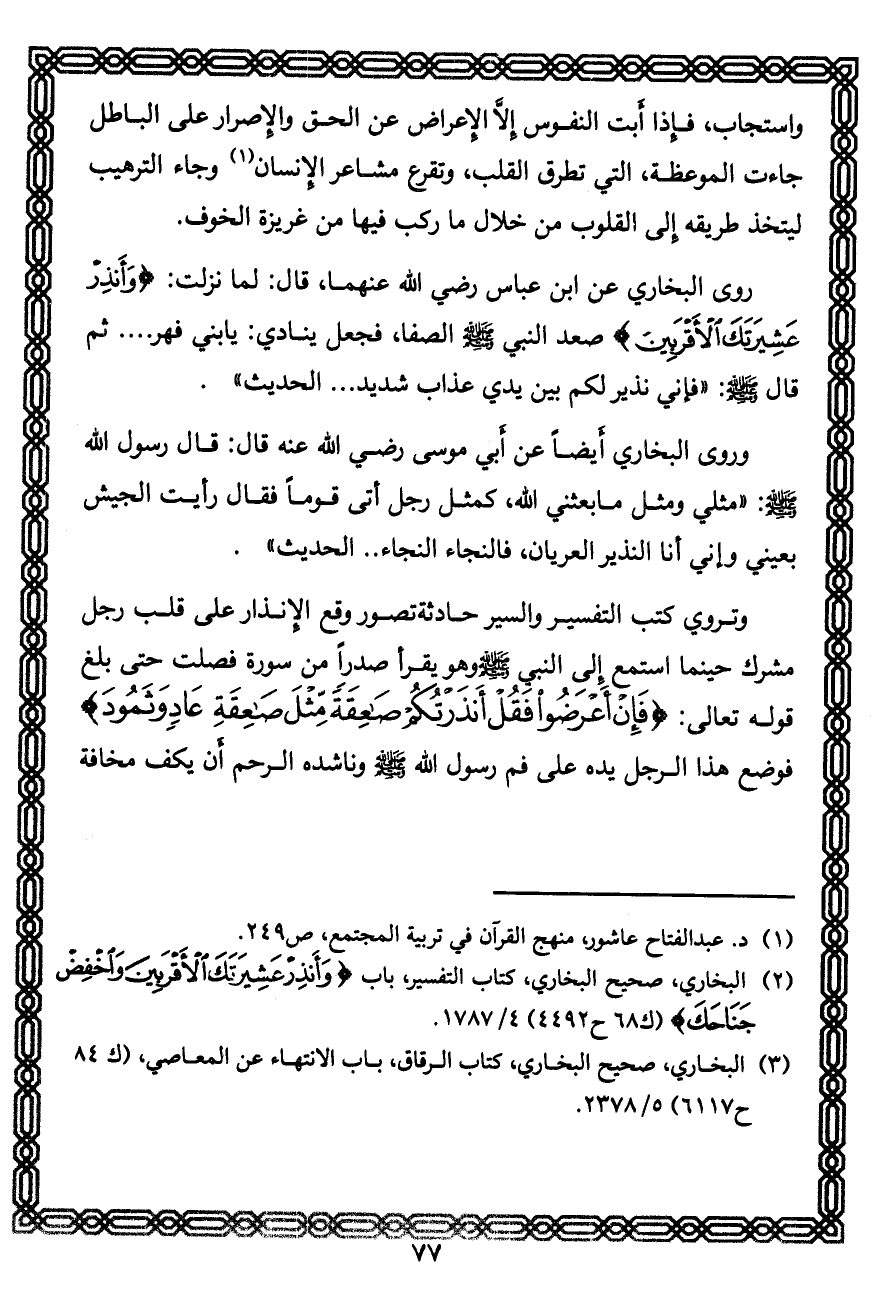 واستجاب، فـإذا أَبت النفـوس إلاَّ الإعراض عن الحـق والإصرار على البـاطل
جاءت الموعظـة، التي تطرق القلب، وتقرع مشـاعر الإنسان(١) وجاء الترهيب
ليتخذ طريقه إلى القلوب من خلال ما ركب فيها من غريزة الخوف.
روى البخاري عن ابن عباس رضي الله عنهمـا، قال: لما نزلت: ﴿وَأَنذِرْ
عَشِيرَتَكَ ٱلْأَقْرَبِينَ﴾ صعد النبي ﷺ الصفا، فجعل ينـادي: يابني فهر.... ثم
قال ﷺ: «فإني نذير لكم بين يدي عذاب شديد... الحديث» .
وروى البخاري أَيضـاً عن أَبي موسى رضـي الله عنه قال: قـال رسول الله
ﷺ: «مثلي ومثـل مـابعثني الله، كمثـل رجل أتى قـومـاً فقـال رأيـت الجيش
بعيني وإني أنا النذير العريان، فالنجاء النجاء.. الحديث» .
وتـروي كتب التفسيـر والسير حـادثةتصـور وقع الإنـذار على قلـب رجل
مشرك حينما استمع إلى النبي ﷺوهو يقـرأ صدراً من سورة فصلت حتى بلغ
قولـه تعالى: ﴿فَإِنْ أَعْرَضُوا۟ فَقُلْ أَنذَرْتُكُمْ صَـٰعِقَةً مِّثْلَ صَـٰعِقَةِ عَادٍ وَثَمُودَ﴾
فوضع هذا الـرجل يده على فم رسول الله ﷺ وناشده الـرحم أَن يكف مخافة
(١) د. عبدالفتاح عاشور، منهج القرآن في تربية المجتمع، ص٢٤٩.
(٢) البخاري، صحيح البخاري، كتاب التفسير، باب ﴿وَأَنذِرْ عَشِيرَتَكَ ٱلْأَقْرَبِينَ وَٱخْفِضْ
جَنَاحَكَ﴾ (ك٦٨ ح٤٤٩٢) ٤/ ١٧٨٧.
(٣) البخـاري، صحيح البخاري، كتاب الـرقاق، بـاب الانتهـاء عن المعـاصي، (ك ٨٤
ح٦١١٧) ٥/ ٢٣٧٨.
٧٧